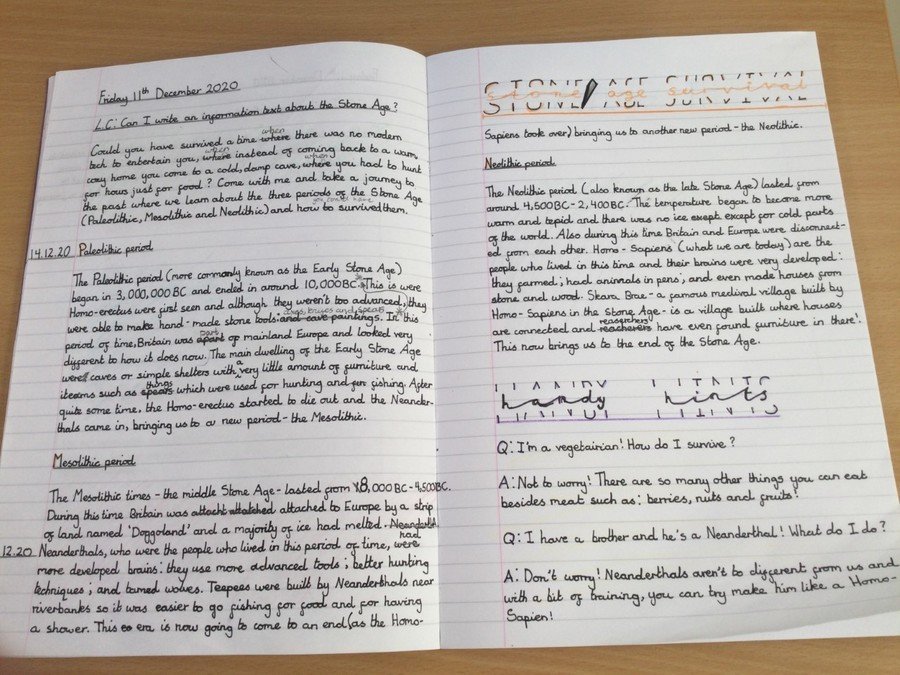 Friday 11th December 2020
L.C: Can I write an information text about the Stone Age?
Could you have survived a time where when there was no modern
tech to entertain you, where when instead of coming back to a warm,
cosy home you come to a cold, damp cave, where when you had to hunt
for hous just for food? Come with me and take a journey to
the past where we learn about the three periods of the Stone Age
(Paleolithic, Mesolithic and Neolithic) and how to survived them.
14.12.20 Paleolithic period
The Paleolithic period (more commonly known as the Early Stone Age)
began in 3,000,000 BC and ended in around 10,000BC. This is were
Homo-erectus were first seen and although they weren't too advanced, they
were able to make hand-made stone tools and cave paintings. In this
period of time, Britain was apart part of mainland Europe and looked very
different to how it does now. The main dwelling of the Early Stone Age
were caves or simple shelters with a very little amount of furniture and
iteams such as spears things which were used for hunting and fishing. After
quite some time, the Homo-erectus started to die out and the Neander-
thals came in, bringing us to a new period - the Mesolithic.
Mesolithic period
The Mesolithic times - the middle Stone Age - lasted from 8,000BC - 4,500BC.
During this time Britain was attached to Europe by a strip
of land named 'Doggoland' and a majority of ice had melted. Neanderthal
12.20 Neanderthals, who were the people who lived in this period of time, were had
more developed brains: they use more advanced tools ; better hunting
techniques ; and tamed wolves. Teepees were built by Neanderthals near
riverbanks so it was easier to go fishing for food and for having
a shower. This era is now going to come to an end (as the Homo-
STONE AGE SURVIVAL
stone age survival
Sapiens took over) bringing us to another new period - the Neolithic.
Neolithic period
The Neolithic period (also known as the late Stone Age) lasted from
around 4,500BC - 2,400BC. The temperature began to become more
warm and tepid and there was no ice except for cold parts
of the world. Also during this time Britain and Europe were disconnect-
ed from each other. Homo-Sapiens (what we are today) are the
people who lived in this time and their brains were very developed:
they farmed ; had animals in pens ; and even made houses from
stone and wood. Skara Brae - a famous medival village built by
Homo-Sapiens in the Stone Age - is a village built where houses
are connected and reacherers reaserchers have even found furniture in there!
This now brings us to the end of the Stone Age.
handy hints
Q: I'm a vegetairian! How do I survive?
A: Not to worry! There are so many other things you can eat
besides meat such as: berries, nuts and fruits!
Q: I have a brother and he's a Neanderthal! What do I do?
A: Don't worry! Neanderthals aren't to different from us and
with a bit of training, you can try make him like a Homo-
Sapien!